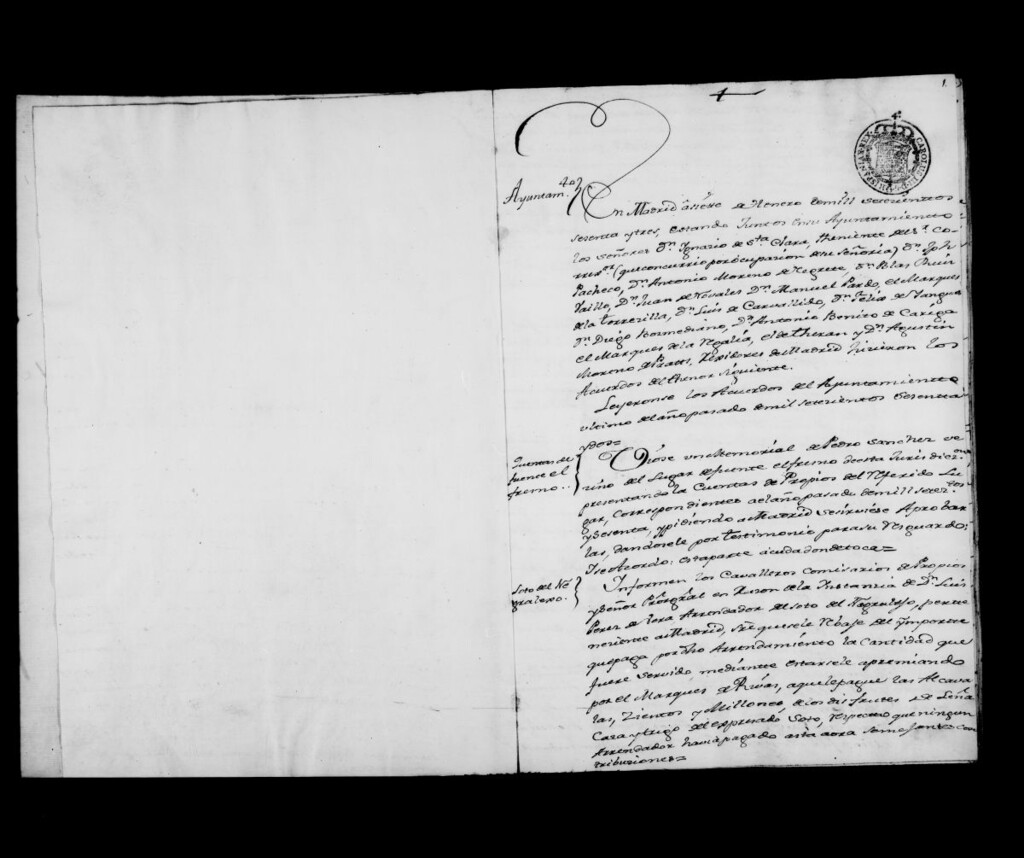 1
Ayuntam.to
En Madrid a siete de Henero de mill setecientos
sesenta y tres, estando Juntos en su Ayuntamiento
los señores Dn. Ignacio de Sta. Clara, theniente del Sr. Co-
rrexor. (que concurrio por ocupacion de su señoria) Dn. Jph
Pacheco, Dn. Antonio Moreno de Negrete, Dn. Blas Ruiz
Dn. Juan de Novales Dn. Manuel Pardo, el Marques
de la torrezilla, Dn. Luis de Carvallido, Dn. Felix de Yangua
Dn. Diego Bermediano, Dn. Antonio Benito de Cariga
el Marques de la Regalia, el de theran y Dn. Agustin
Moreno de Pratts, Rexidores de Madrid hicieron los
Acuerdos del thenor siguiente.
Leyeronse los Acuerdos del Ayuntamiento
ultimo del año pasado de mil setecientos sesenta
y dos=
Quentas de
fuente el
fresno..
Viose un Memorial de Pedro Sanchez ve
cino del Lugar de fuente el fresno de esta Jurisdiczon.
presentando la Cuentas de Propios del Referido Lu
gar, correspondientes al año pasado de mill setezos.
y sesenta, y pidiendo a Madrid se sirviese Aprobar
las, dandosele por testimonio para su Resguardo:
Y se Acordo: esta parte acuda donde toca=
Soto del Ne
gralexo.
Informen los Cavalleros Comisarios de Propios
y Señor Procgral en Razon de la Instanzia de Dn. Luis
Perez de Vera Arrendador del soto del Negralejo, perte
neciente a Madrid, sre que se le Rebaje del Ymporte
que paga por dho Arrendamiento la Cantidad que
fuere servido, mediante estarsele apremiando
por el Marques de Rivas, a que le pague las Alcava
las, Zientos y Millones, de los disfrutes de Leña
Caza y trigo del expresado Soto, respecto que ningun
Arrendador havia pagado asta aora semejantes con
tribuziones=